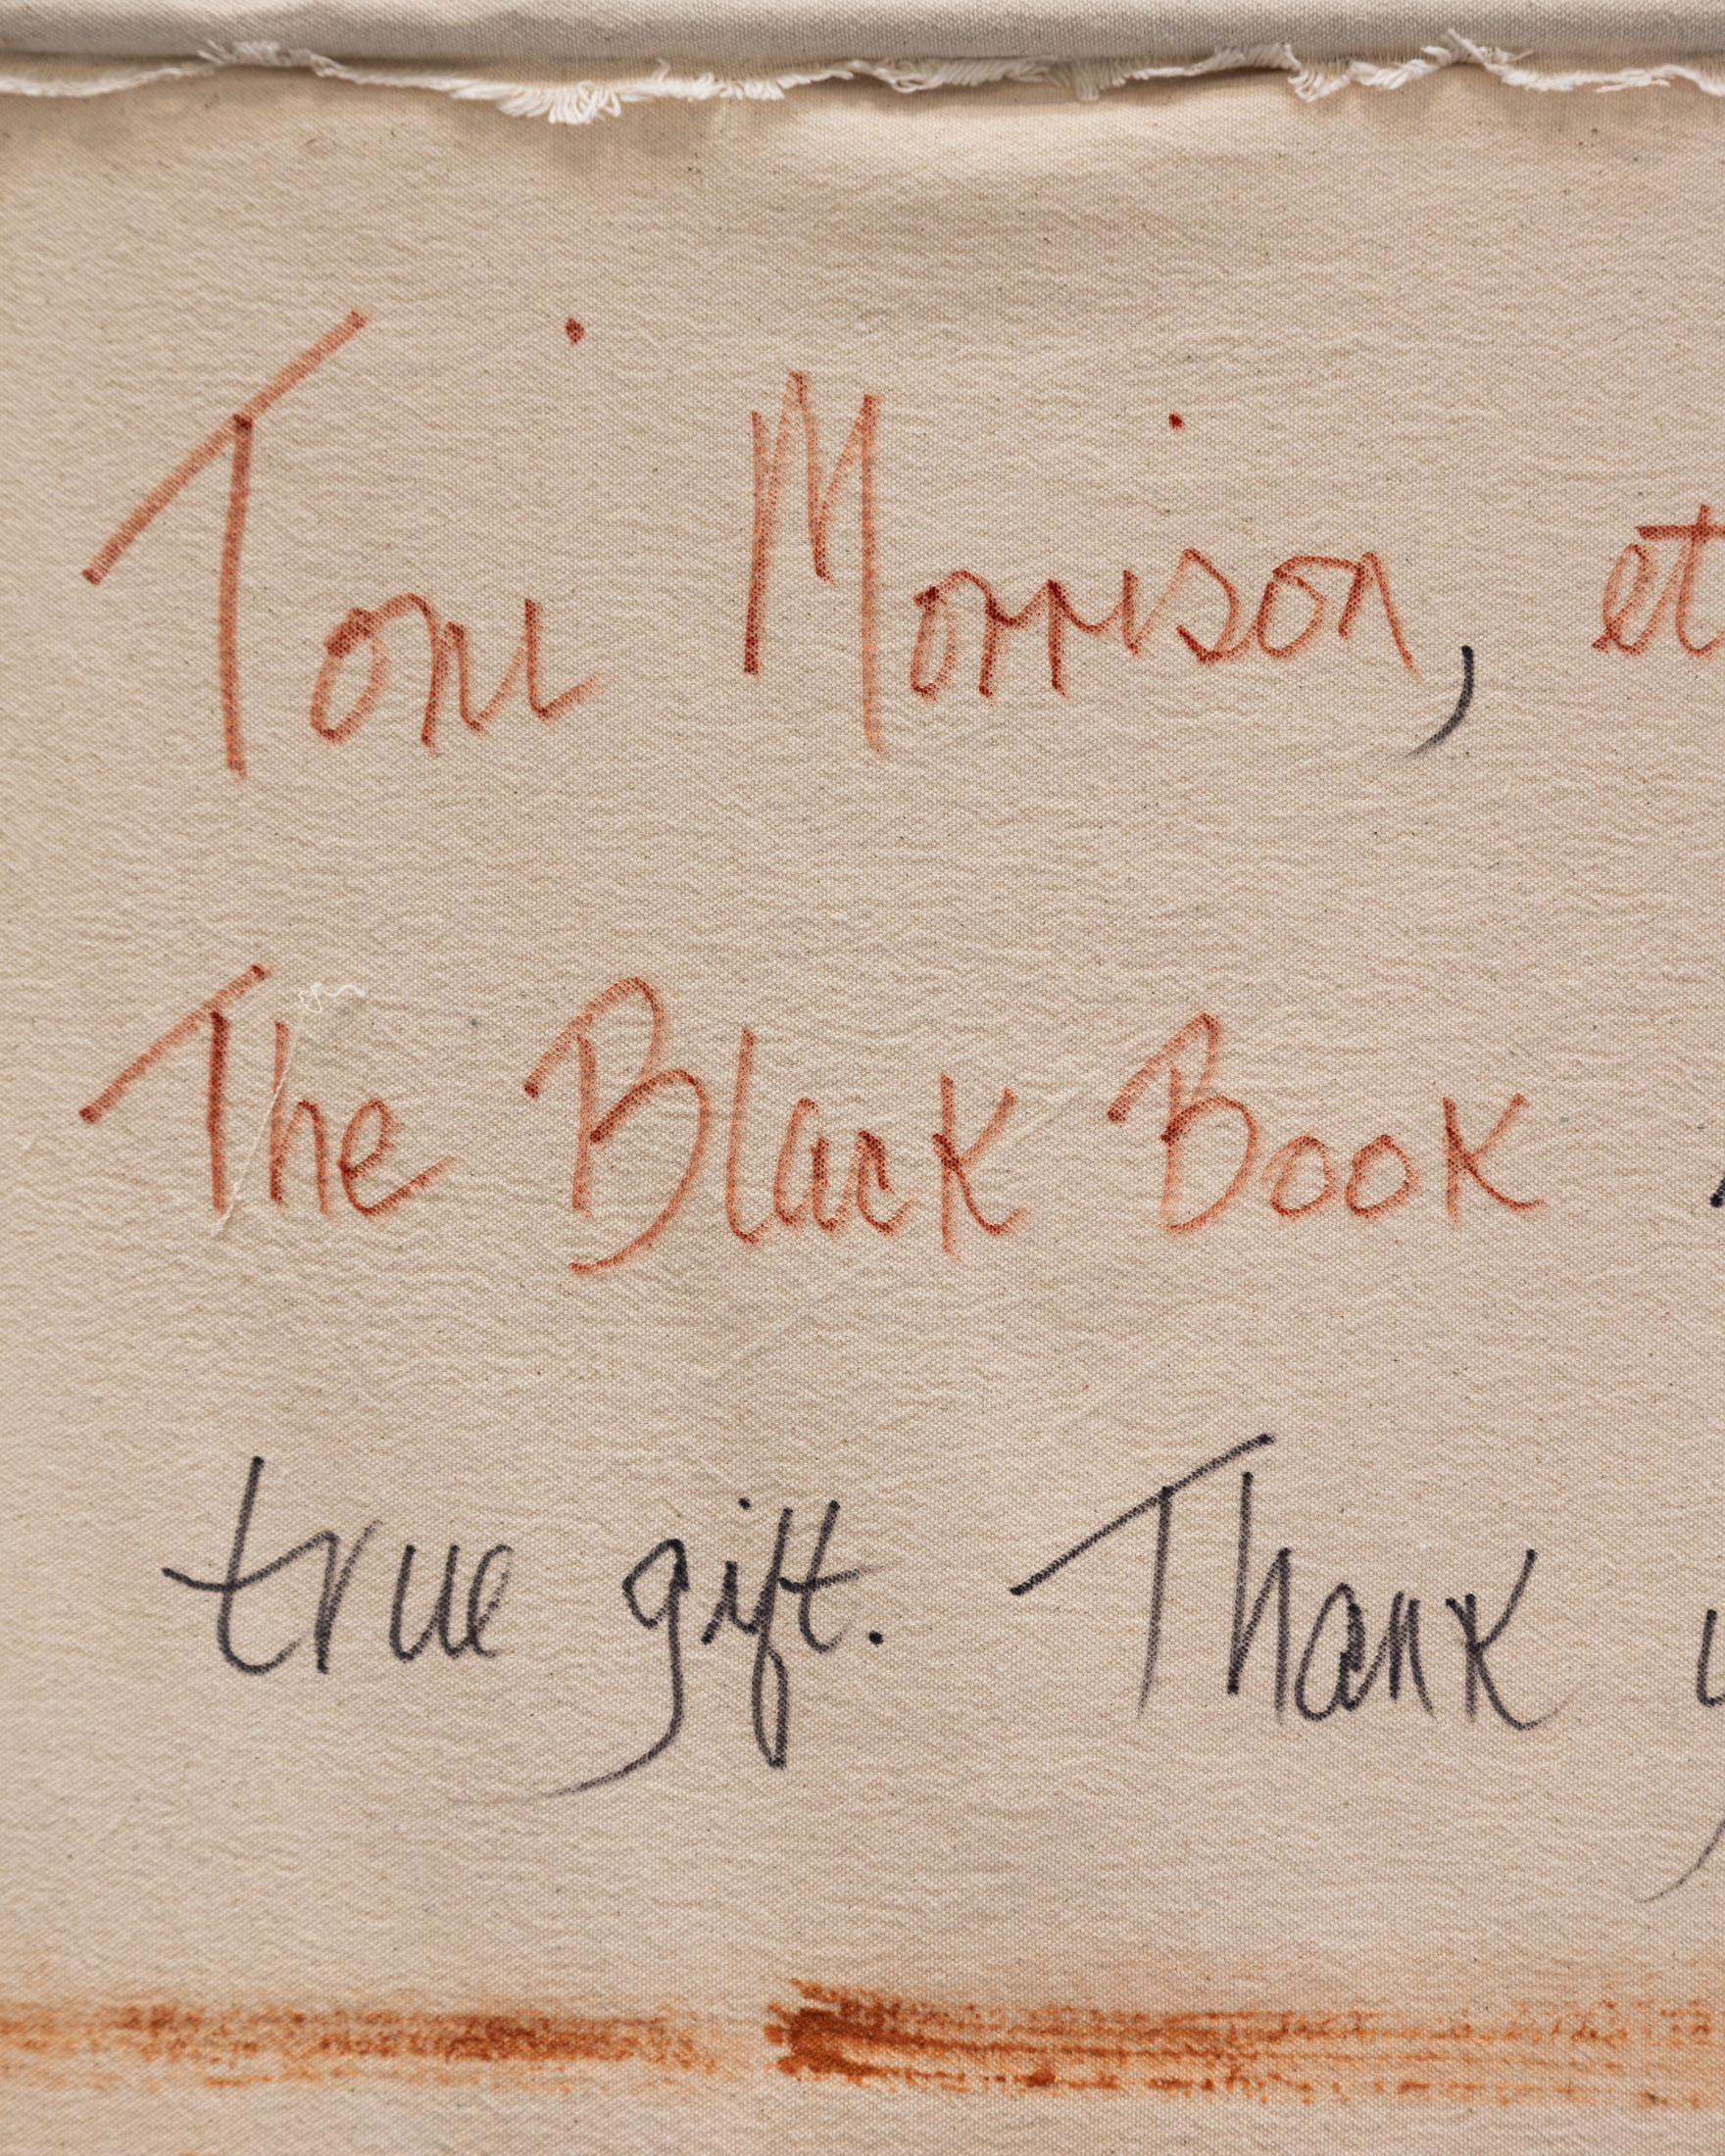 Toni Morrison, et
The Black Book
true gift. Thank